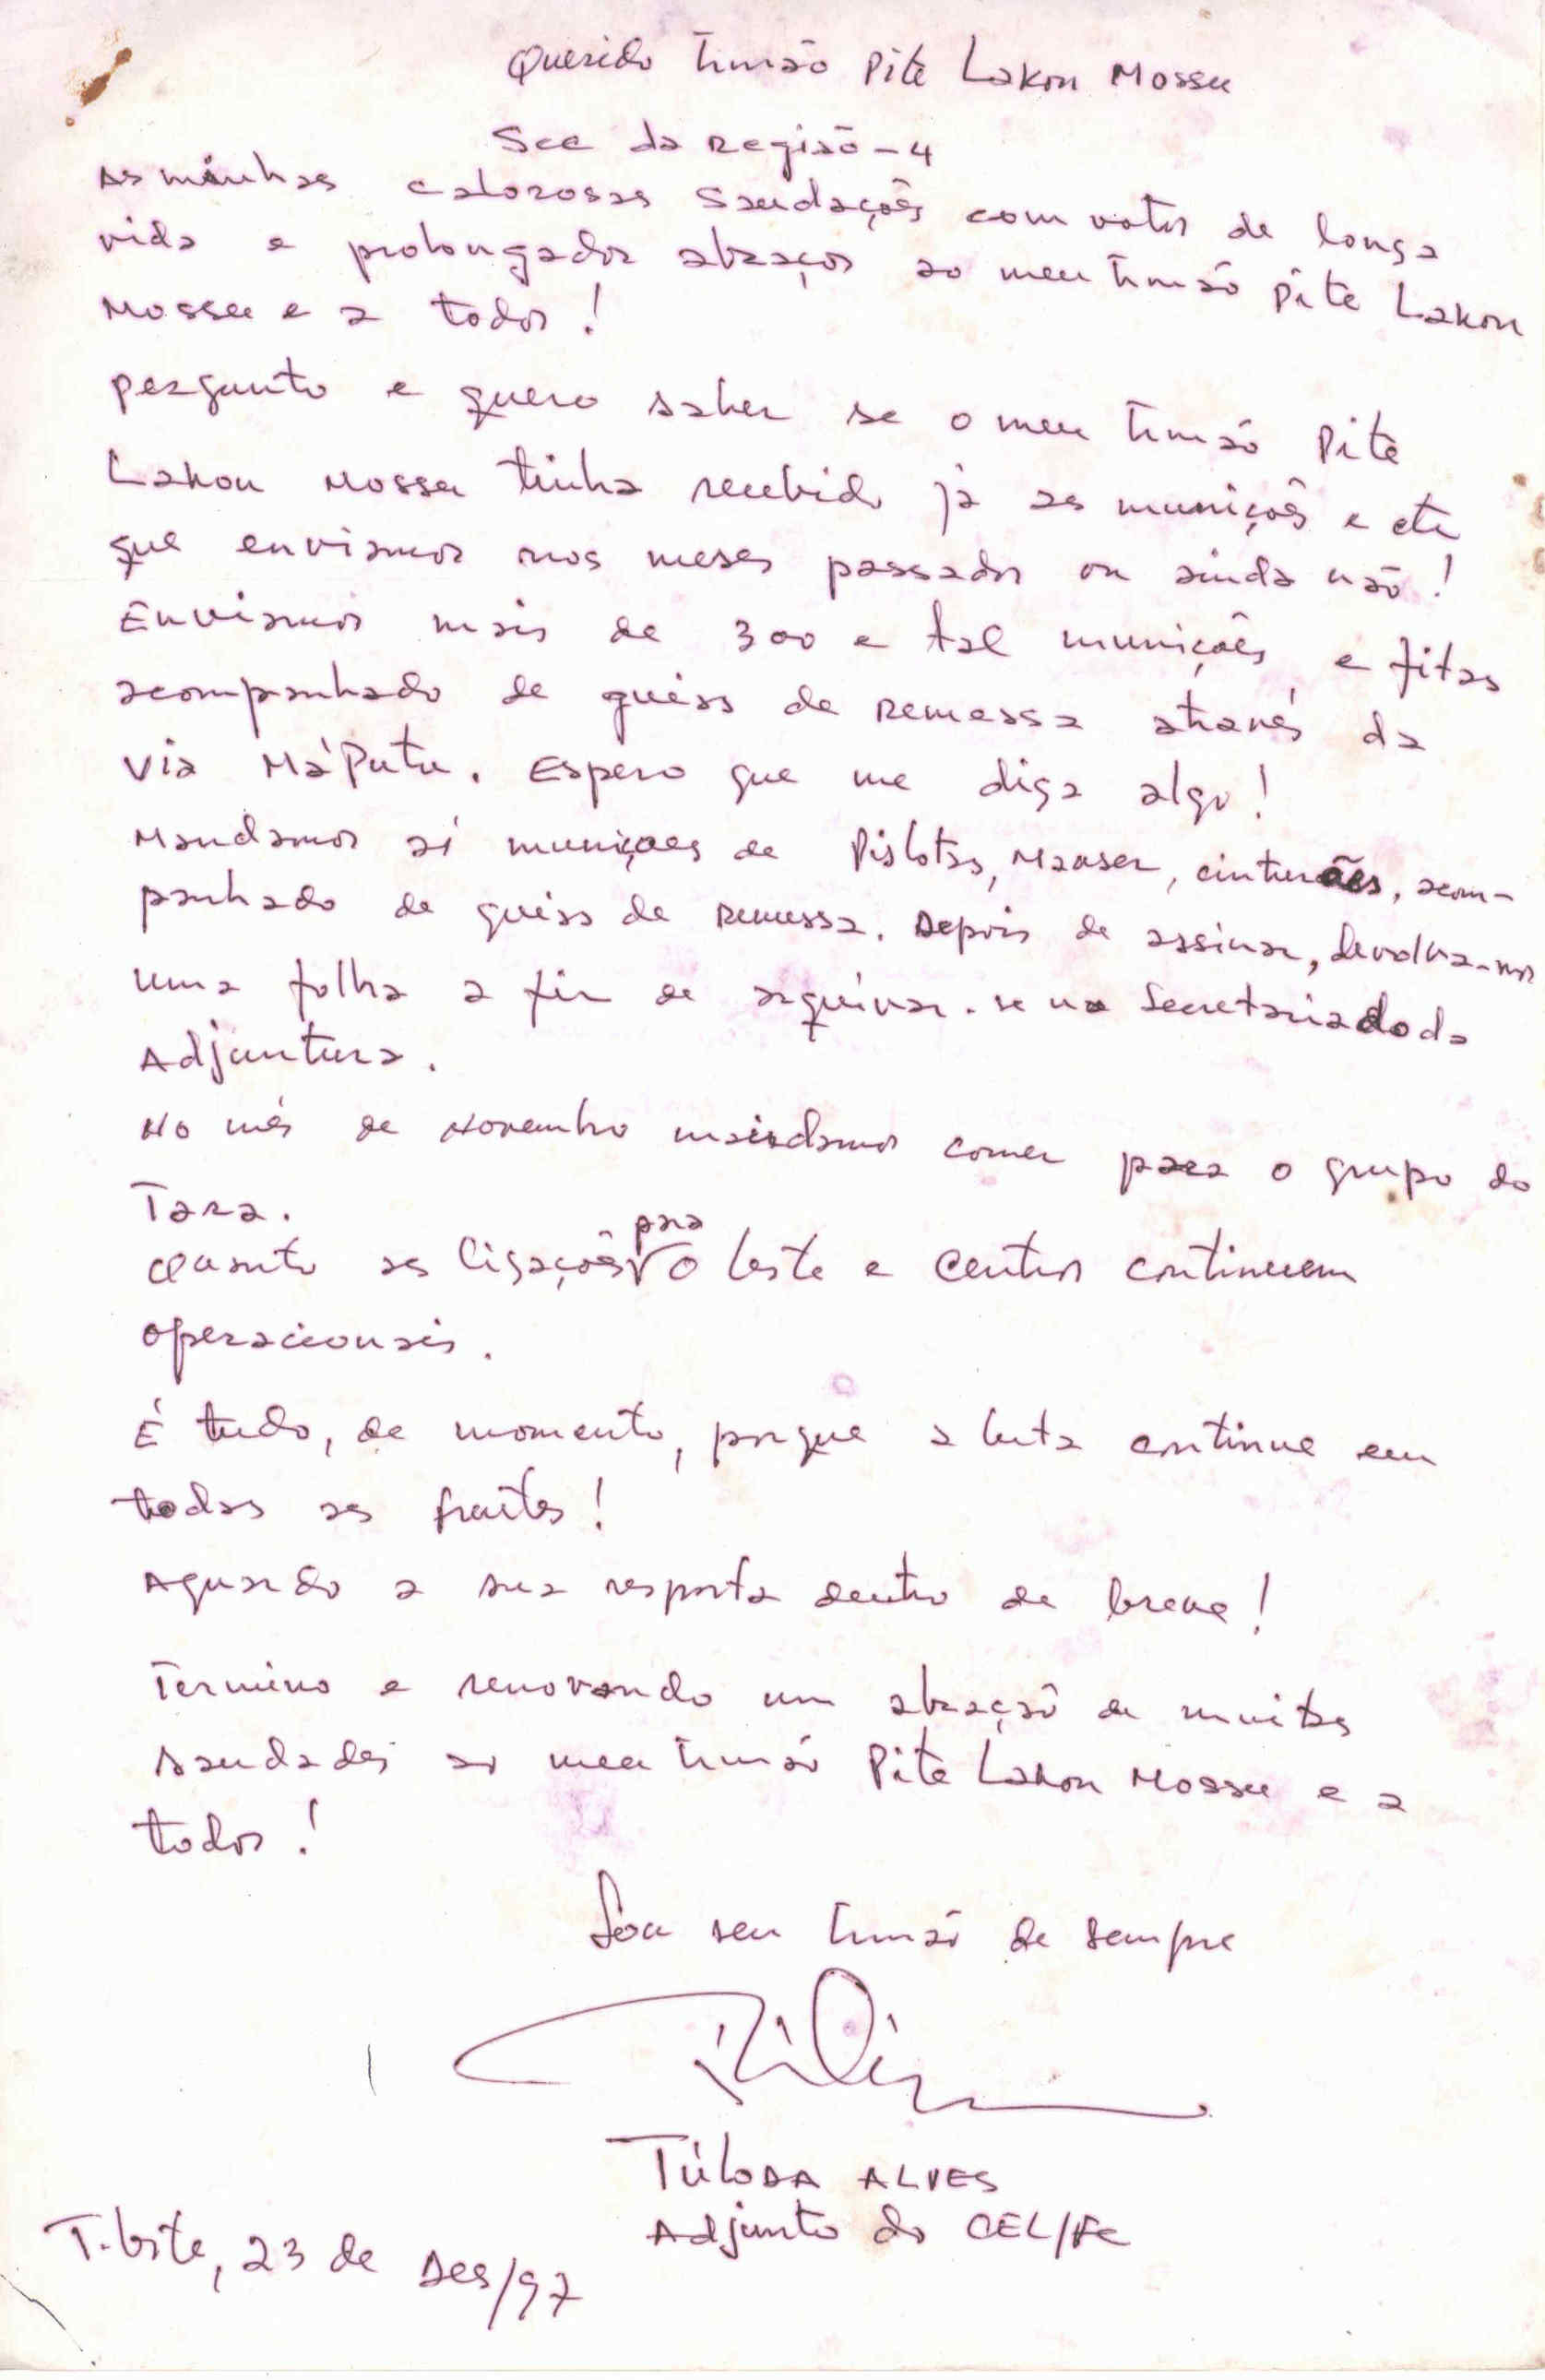 Querido Irmão Pite Lakon Mossu
Sec da Região-4
As minhas calorosas saudações com votos de longa
vida e prolongados abraços ao meu Irmão Pite Lakon
Mossu e a todos!
Pergunto e quero saber se o meu Irmão Pite
Lakon Mossu tinha recebido já as munições e etc
que enviamos nos meses passados ou ainda não!
Enviamos mais de 300 e tal munições e fitas
acompanhado de guias de remessa através da
via Má'Putu. Espero que me diga algo!
Mandamos aí munições de Pistolas, Mauser, cinturões, acom-
panhado de guias de remessa. Depois de assinar, devolva-nos
uma folha a fim de arquivar-se no Secretariado da
Adjuntura.
No mês de Novembro mandamos comer para o grupo do
Tara.
Quanto as ligações para o leste e centro continuem
operacionais.
É tudo, de momento, porque a luta continue em
todas as frentes!
Aguardo a sua resposta dentro de breve!
Termino e renovando um abraço de muitas
saudades ao meu Irmão Pite Lakon Mossu e a
todos!
Sou seu Irmão de sempre
TÚLODA ALVES
Adjunto do CEL/FC
T. leste, 23 de Des/97